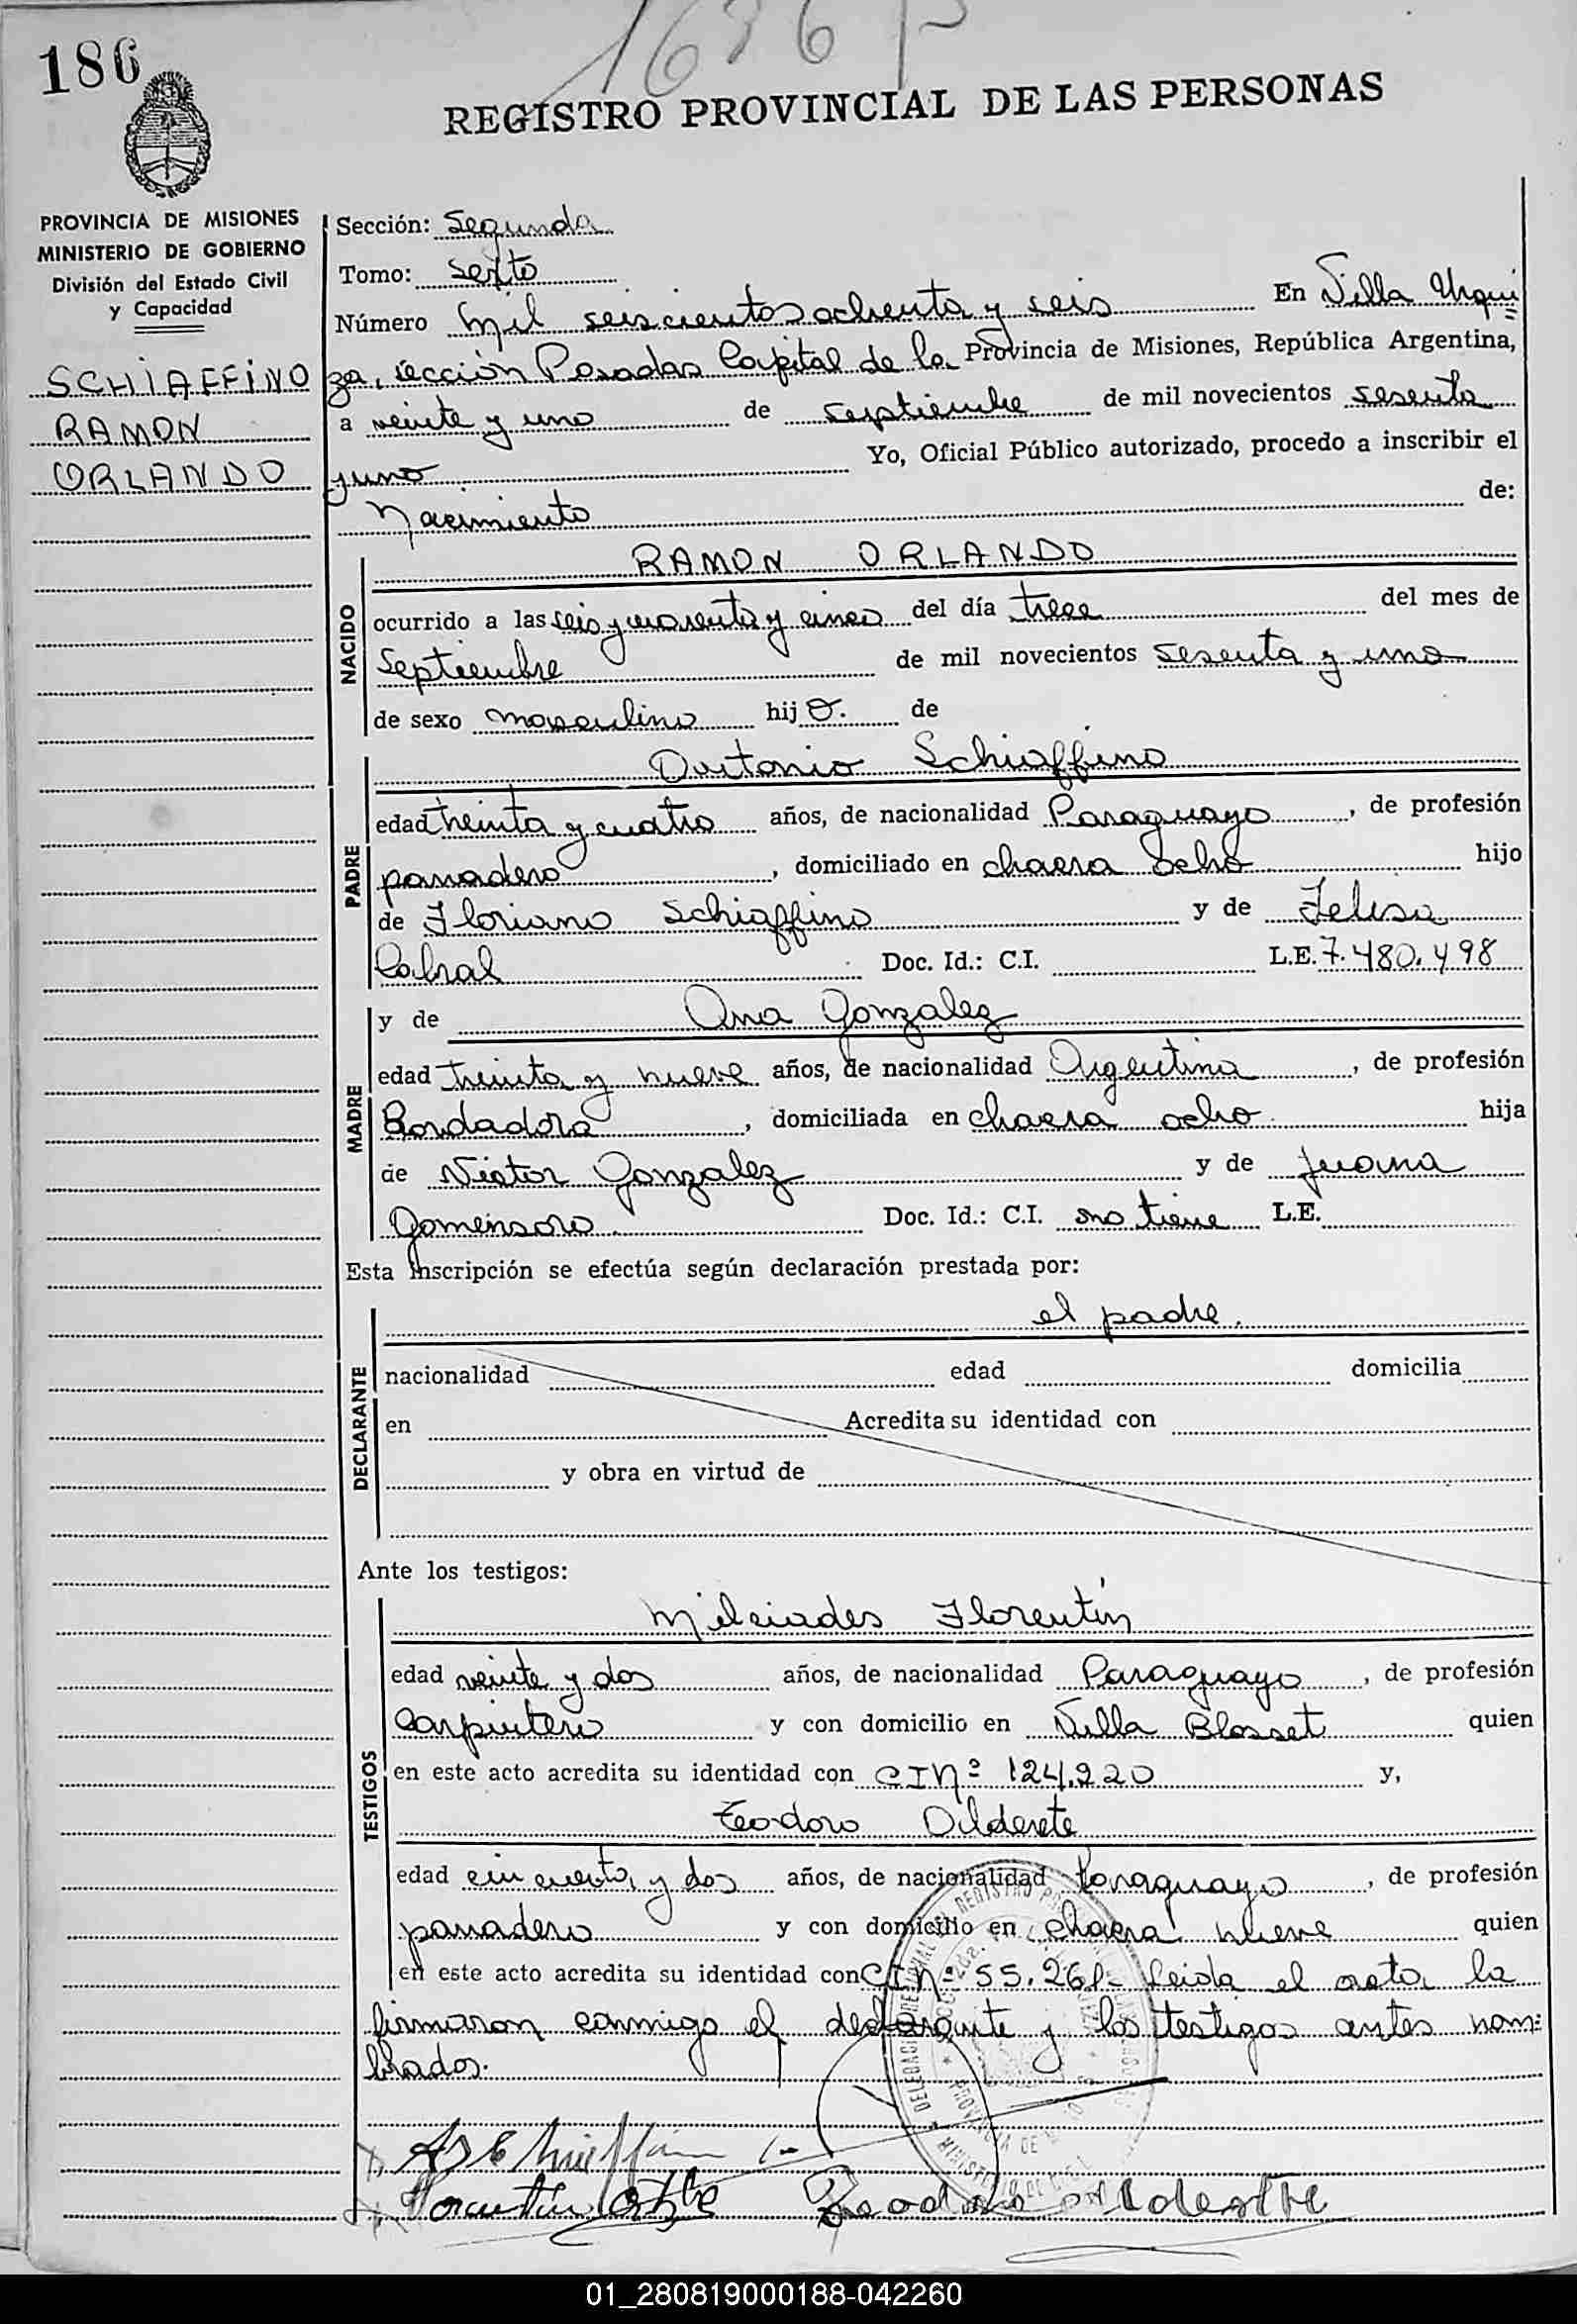 1686 P
186
REGISTRO PROVINCIAL DE LAS PERSONAS
PROVINCIA DE MISIONES
MINISTERIO DE GOBIERNO
División del Estado Civil
y Capacidad
SCHIAFFINO
RAMON
ORLANDO
Sección: Segunda
Tomo: sexto
Número mil seiscientos ochenta y seis En Villa Urqui
za, sección Posadas Capital de la Provincia de Misiones, República Argentina,
a veinte y uno de septiembre de mil novecientos sesenta
y uno Yo, Oficial Público autorizado, procedo a inscribir el
Nacimiento de:
NACIDO
RAMON ORLANDO
ocurrido a las seis y cuarenta y cinco del día trece del mes de
Septiembre de mil novecientos sesenta y uno
de sexo masculino hijo. de
PADRE
Antonio Schiaffino
edad treinta y cuatro años, de nacionalidad Paraguayo, de profesión
panadero, domiciliado en chacra ocho hijo
de Floriano Schiaffino y de Felisa
Cabral Doc. Id.: C.I. L.E. 7.480.498
MADRE
y de Ana Gonzalez
edad treinta y nueve años, de nacionalidad Argentina, de profesión
Bordadora, domiciliada en chacra ocho. hija
de Victor Gonzalez y de Juana
Gomensoro. Doc. Id.: C.I. no tiene L.E.
Esta inscripción se efectúa según declaración prestada por:
DECLARANTE
el padre.
nacionalidad edad domicilia
en Acredita su identidad con
y obra en virtud de
Ante los testigos:
TESTIGOS
Milciades Florentín
edad veinte y dos años, de nacionalidad Paraguayo, de profesión
Carpintero y con domicilio en Villa Blosset quien
en este acto acredita su identidad con CI Nº 124.220 y,
Teodoro Alderete
edad cincuenta y dos años, de nacionalidad Paraguayo, de profesión
panadero y con domicilio en chacra nueve quien
en este acto acredita su identidad con CI Nº 55.261.- Leida el acta la
firmaron conmigo el declarante y los testigos antes nom=
brados.
01_280819000188-042260